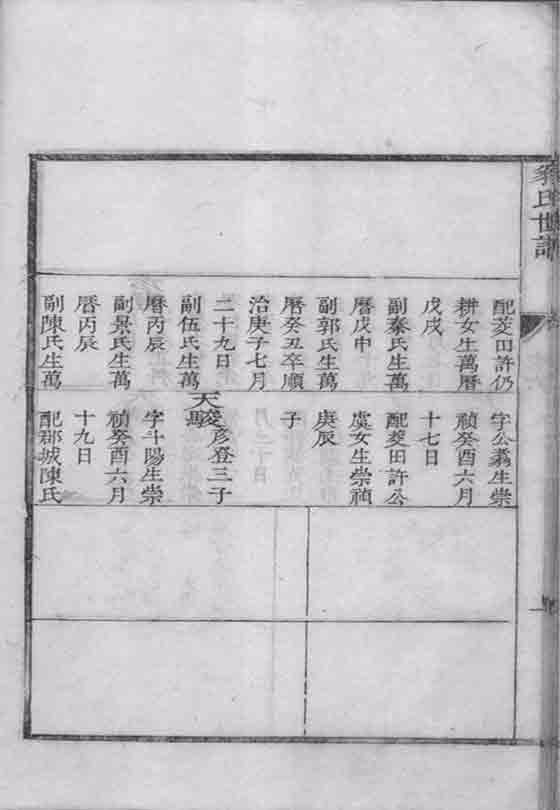 氏世譜
配菱田許仍
耕女生萬曆
戊戌
副秦氏生萬
曆戊申
副郭氏生萬
曆癸丑卒順
治庚子七月
二十九日
副伍氏生萬
曆丙辰
副景氏生萬
曆丙辰
副陳氏生萬
字公翥生崇
禎癸酉六月
十七日
配菱田許公
虞女生崇禎
庚辰
子
天駿彥登三子
字斗陽生崇
禎癸酉六月
十九日
配郡城陳氏